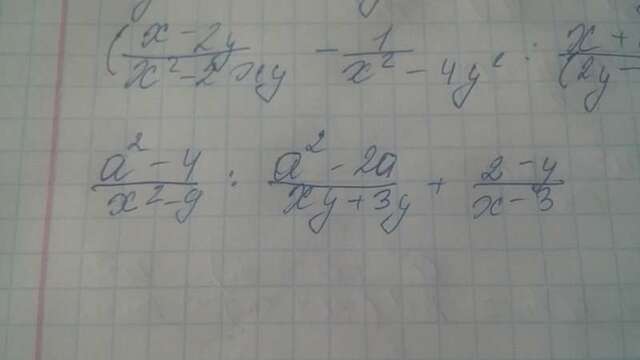 (x - 2y / x² - 2xy - 1 / x² - 4y² : x + / (2y -
a² - 4 / x² - 9 : a² - 2a / xy + 3y + 2 - y / x - 3